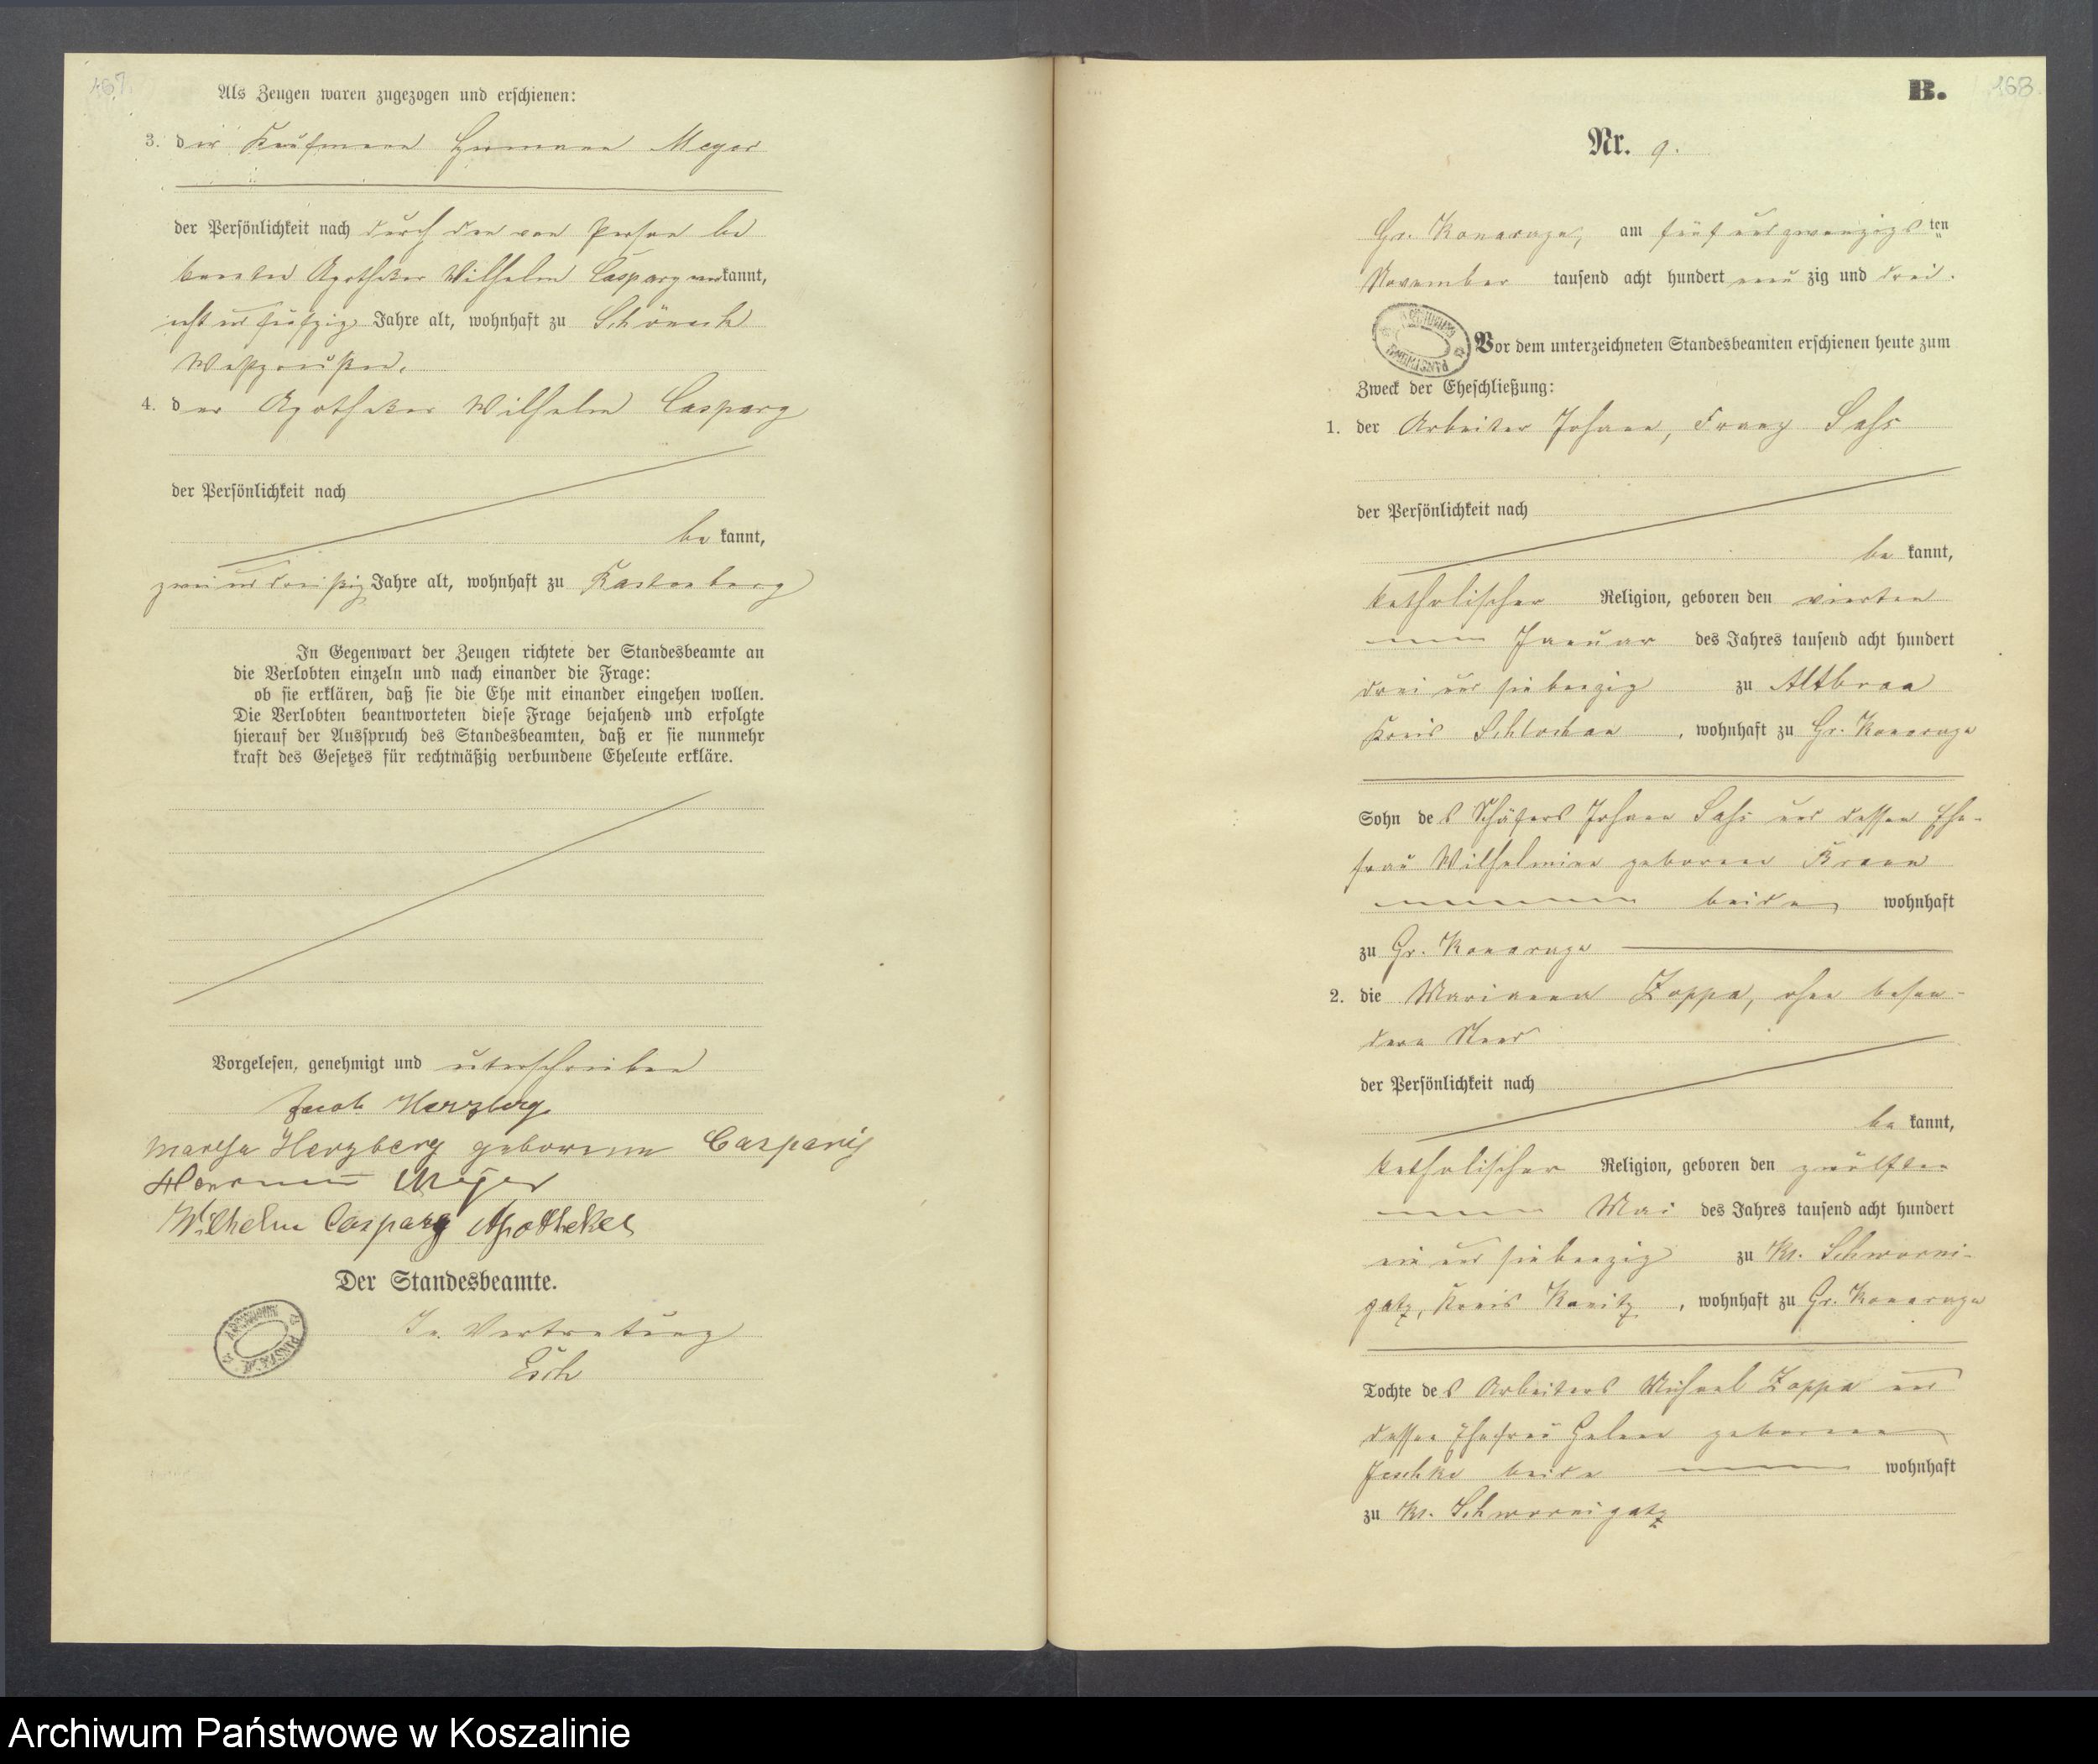 167.
Als Zeugen waren zugezogen und erschienen:
3. der Kaufmann Hermann Meyer
der Persönlichkeit nach durch den von Person be
kannten Apotheker Wilhelm Caspary anerkannt,
acht und fünfzig Jahre alt, wohnhaft zu Schöneck
Westpreußen.
4. der Apotheker Wilhelm Caspary
der Persönlichkeit nach
be kannt,
zwei und dreißig Jahre alt, wohnhaft zu Rastenburg
In Gegenwart der Zeugen richtete der Standesbeamte an
die Verlobten einzeln und nach einander die Frage:
ob sie erklären, daß sie die Ehe mit einander eingehen wollen.
Die Verlobten beantworteten diese Frage bejahend und erfolgte
hierauf der Ausspruch des Standesbeamten, daß er sie nunmehr
kraft des Gesetzes für rechtmäßig verbundene Eheleute erkläre.
Vorgelesen, genehmigt und unterschrieben
Jacob Herzberg
Martha Herzberg geborenen Caspary
Hermann Meyer
Wilhelm Caspary Apotheker
Der Standesbeamte.
In Vertretung
B. 168
Nr. 9.
Gr. Konarczyn, am fünf und zwanzigsten
November tausend acht hundert neun zig und drei.
Vor dem unterzeichneten Standesbeamten erschienen heute zum
Zweck der Eheschließung:
1. der Arbeiter Johann, Franz
der Persönlichkeit nach
be kannt,
katholischer Religion, geboren den vierten
Januar des Jahres tausend acht hundert
drei und siebenzig zu Altbraa
Kreis Schlochau, wohnhaft zu Gr. Konarczyn
Sohn des Schäfers Johann und dessen Ehe-
frau Wilhelmine geborenen
beide wohnhaft
zu Gr. Konarczyn
2. die Marianna Zoppa, ohne beson-
dern Stand
der Persönlichkeit nach
be kannt,
katholischer Religion, geboren den zwölften
Mai des Jahres tausend acht hundert
ein und siebenzig zu Kl. Schworni-
gatz, Kreis Konitz, wohnhaft zu Gr. Konarczyn
Tochter des Arbeiters Michael Zoppa und
dessen Ehefrau Helene geborenen
Jeschke beide wohnhaft
zu Kl. Schwornigatz
Archiwum Państwowe w Koszalinie